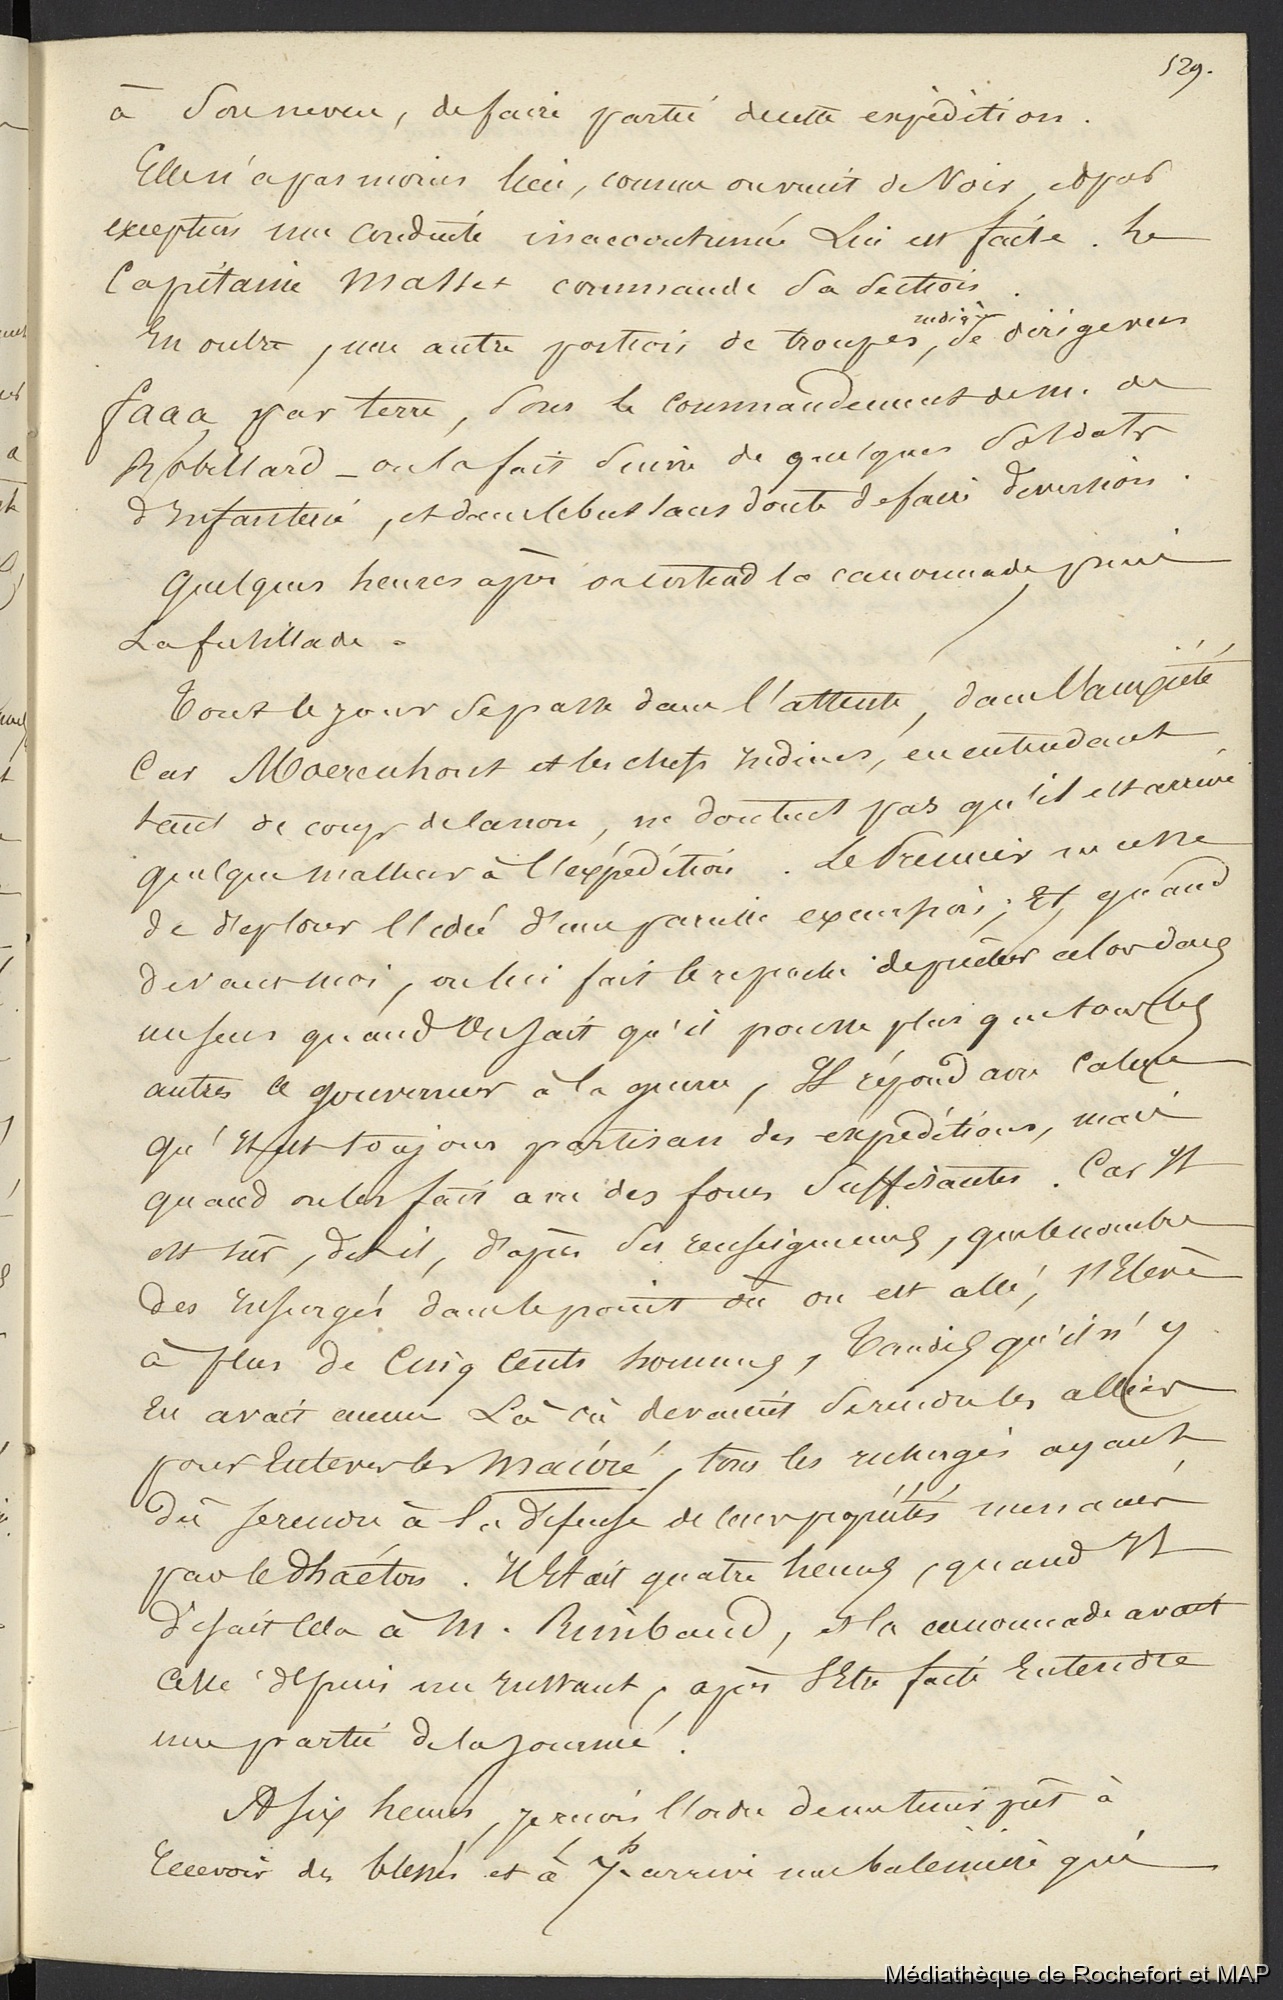 529.
à Son neveu, de faire partie de cette expédition.
Elle n'a pas moins lieu, comme on vient de Voir, et par
exception une conduite inaccoutumée Lui est faite. Le
Capitaine Masset commande Sa Section.
En outre, une autre portion de troupes, se dirige vers
indig
faaa par terre, Sous le commandement de M. de
Robillard - on la fait Suivre de quelques Soldats
d'Infanterie, et dans le but sans doute de faire diversion.
Quelques heures après on entend la canonnade, puis
La fusillade.
Tout le jour Se passe dans l'attente, dans l'anxiété
Car Moerenhout et les chefs Indiens, en entendant
tant de coups de canon, ne doutent pas qu'il est arrivé
quelque malheur à l'éxpédition. Le Premier ne cesse
de déplorer l'idée d'une pareille excursion; Et, quand
devant moi, on lui fait le reproche de prêcher alors dans
un sens quand On sait qu'il pousse plus que tous les
autres le gouverneur à la guerre, Il répond avec calme
qu'Il est toujours partisan des expéditions, mais
quand on les fait avec des forces Suffisantes. Car Il
est sûr, dit il, d'après Ses renseignements, que le nombre
des Insurgés dans le point où on est allé, s'Elève
à plus de Cinq Cents hommes, Tandis qu'il n'y
En avait aucun Là où devaient Se rendre les alliés
pour Enlever les Maioré, tous les insurgés ayant
Dû se rendre à la défense de leurs propriétés menacées
par le Phaéton. Il Etait quatre heures, quand Il
Disait Cela à M. Rimbaud, et la canonnade avait
Cessé depuis un Instant, après S'Etre faite Entendre
une partie de la Journée.
A six heures, je reçois l'ordre de me tenir prêt à
Recevoir des blessés et à 7h arrive une baleinière qui
Médiathèque de Rochefort et MAP